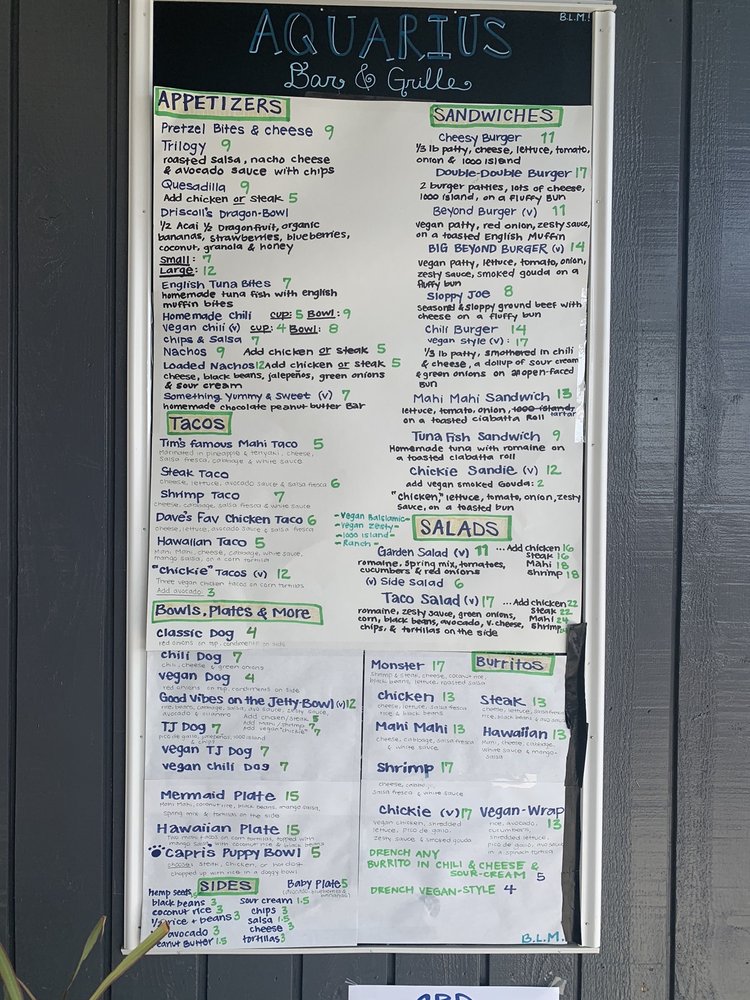 B.L.M.!
AQUARIUS
Bar & Grille
APPETIZERS
Pretzel Bites & cheese 9
Trilogy 9
roasted salsa, nacho cheese
& avocado sauce with chips
Quesadilla 9
Add chicken or steak 5
Driscoll's Dragon-Bowl
1/2 Acai 1/2 Dragonfruit, organic
bananas, strawberries, blueberries,
coconut, granola & honey
Small: 7
Large: 12
English Tuna Bites 7
homemade tuna fish with english
muffin bites
Homemade chili cup: 5 Bowl: 9
vegan chili (v) cup: 4 Bowl: 8
chips & Salsa 7
Nachos 9 Add chicken or steak 5
Loaded Nachos 12 Add chicken or steak 5
cheese, black beans, jalepeños, green onions
& sour cream
Something Yummy & Sweet (v) 7
homemade chocolate peanut butter Bar
Tacos
Tim's famous Mahi Taco 5
Marinated in pineapple & teriyaki, cheese,
salsa fresca, cabbage & white sauce
Steak Taco
cheese, lettuce, avocado sauce & salsa fresca 6
Shrimp Taco 7
cheese, cabbage, salsa fresca & white sauce
Dave's Fav Chicken Taco 6
cheese, lettuce, avocado sauce & salsa fresca
Hawaiian Taco 5
Mahi Mahi, cheese, cabbage, white sauce,
mango salsa, on a corn tortilla
"Chickie" Tacos (v) 12
Three vegan chicken tacos on corn tortillas
Add avocado: 3
Bowls, Plates & More
Classic Dog 4
red onions on top, condiments on side
chili Dog 7
chili, cheese & green onions
vegan Dog 4
red onions on top, condiments on side
Good Vibes on the Jetty-Bowl (v) 12
rice, beans, cabbage, salsa, avo sauce, zesty sauce,
avocado & cilantro
Add chicken/steak 5
Add Mahi/shrimp 7
Add vegan "chickie" 7
TJ Dog 7
pico de gallo, jalapeños, 1000 island
& chips
vegan TJ Dog 7
vegan chili Dog 7
Mermaid Plate 15
Mahi Mahi, coconut rice, black beans, mango salsa,
spring mix & tortillas on the side
Hawaiian Plate 15
Two mahi tacos on corn tortillas, topped with
mango salsa with coconut rice & black beans
Capri's Puppy Bowl 5
choose: steak, chicken, or hotdog
chopped up with rice in a doggy bowl
SIDES
Baby Plate 5
hemp seeds
black beans 3
coconut rice 3
1/2 rice + beans 3
avocado 3
peanut Butter 1.5
sour cream 1.5
chips 3
salsa 1.5
cheese 3
tortillas 3
SANDWICHES
Cheesy Burger 11
1/3 lb patty, cheese, lettuce, tomato,
onion & 1000 island
Double-Double Burger 17
2 burger patties, lots of cheese,
1000 island, on a fluffy bun
Beyond Burger (v) 11
vegan patty, red onion, zesty sauce,
on a toasted English Muffin
BIG BEYOND BURGER (v) 14
vegan patty, lettuce, tomato, onion,
zesty sauce, smoked gouda on a
fluffy bun
Sloppy Joe 8
seasoned & sloppy ground beef with
cheese on a fluffy bun
Chili Burger 14
vegan style (v): 17
1/3 lb patty, smothered in chili
& cheese, a dollup of sour cream
& green onions on an open-faced
Bun
Mahi Mahi Sandwich 13
lettuce, tomato, onion, 1000 island, tartar
on a toasted ciabatta Roll
Tuna Fish Sandwich 9
Homemade tuna with romaine on
a toasted ciabatta roll
Chickie Sandie (v) 12
add vegan smoked Gouda: 2
"chicken," lettuce, tomato, onion, zesty
sauce, on a toasted bun
-Vegan Balsiamic-
-vegan zesty-
-1000 island-
-Ranch-
SALADS
Garden Salad (v) 11 ...Add chicken 16
romaine, spring mix, tomatoes, steak 16
cucumbers & red onions Mahi 18
shrimp 18
(v) Side Salad 6
Taco Salad (v) 17 ...Add chicken 22
romaine, zesty sauce, green onions, steak 22
corn, black beans, avocado, v. cheese, Mahi 24
chips, & tortillas on the side shrimp
Burritos
Monster 17
Shrimp & steak, cheese, coconut rice,
black beans, lettuce, roasted salsa
chicken 13
cheese, lettuce, salsa fresca
rice & black beans
Steak 13
cheese, lettuce, salsa fresca
rice, black beans & avo sauce
Mahi Mahi 13
cheese, cabbage, salsa fresca
& white sauce
Hawaiian 13
Mahi, cheese, cabbage,
white sauce & mango-
salsa
Shrimp 17
cheese, cabbage,
salsa fresca & white sauce
Chickie (v) 17
vegan chicken, shredded
lettuce, pico de gallo,
zesty sauce, & smoked gouda
Vegan-Wrap 13
rice, avocado,
cucumbers,
shredded lettuce,
pico de gallo,
in a spinach tortilla
DRENCH ANY
BURRITO IN CHILI & CHEESE &
SOUR-CREAM 5
DRENCH VEGAN-STYLE 4
B.L.M.